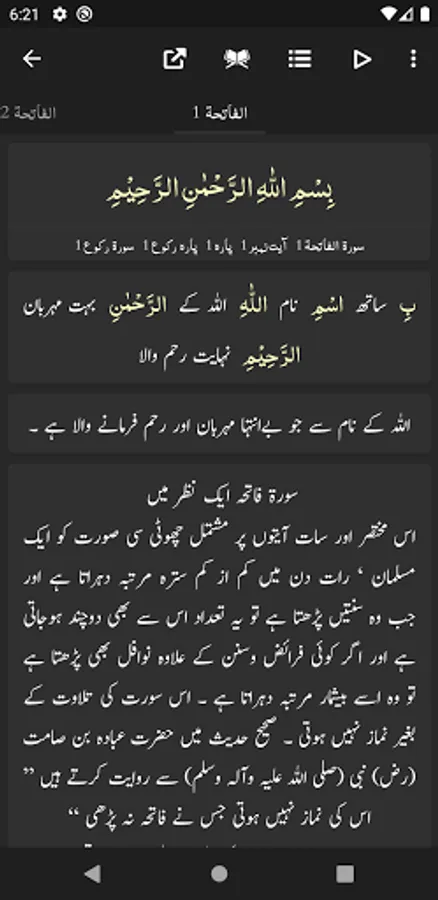 6:21
الفاتحة 1
الفاتحة 2
بِسْمِ اللّٰهِ الرَّحْمٰنِ الرَّحِيْمِ
سورة الفاتحة 1 آیت نمبر 1 پارہ 1 پارہ رکوع 1 سورة رکوع 1
بِ ساتھ اسْمِ نام اللّٰهِ اللہ کے الرَّحْمٰنِ بہت مہربان
الرَّحِيْمِ نہایت رحم والا
اللہ کے نام سے جو بےانتہا مہربان اور رحم فرمانے والا ہے ۔
سورۃ فاتحہ ایک نظر میں
اس مختصر اور سات آیتوں پر مشتمل چھوٹی سی صورت کو ایک
مسلمان ‘ رات دن میں کم از کم سترہ مرتبہ دہراتا ہے اور
جب وہ سنتیں پڑھتا ہے تو یہ تعداد اس سے بھی دوچند ہوجاتی
ہے اور اگر کوئی فرائض وسنن کے علاوہ نوافل بھی پڑھتا ہے
تو وہ اسے بیشمار مرتبہ دہراتا ہے ۔ اس سورت کی تلاوت کے
بغیر نماز نہیں ہوتی ۔ صحیح حدیث میں حضرت عبادہ بن صامت
(رض) نبی (صلی اللہ علیہ وآلہ وسلم) سے روایت کرتے ہیں ”
اس کی نماز نہیں ہوتی جس نے فاتحہ نہ پڑھی “